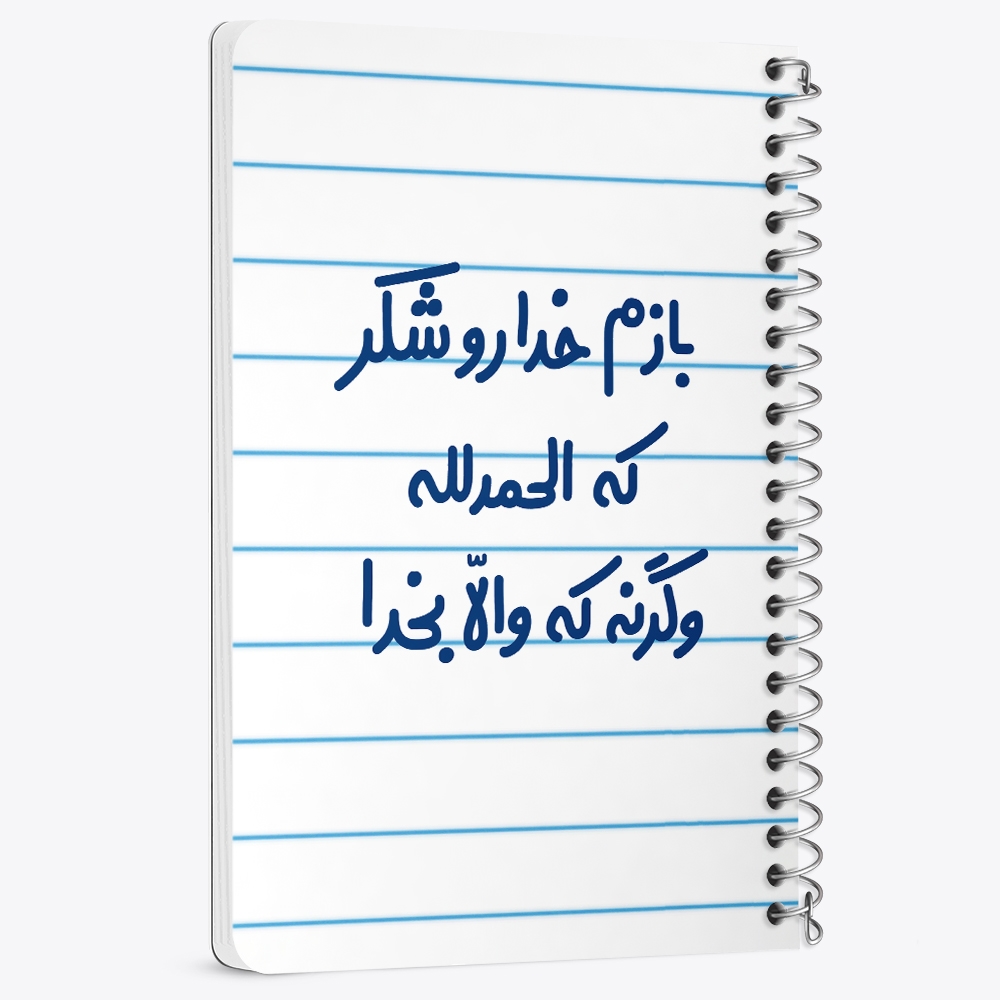 بازم خدارو شکر
که الحمدلله
وگرنه که والّا بخدا